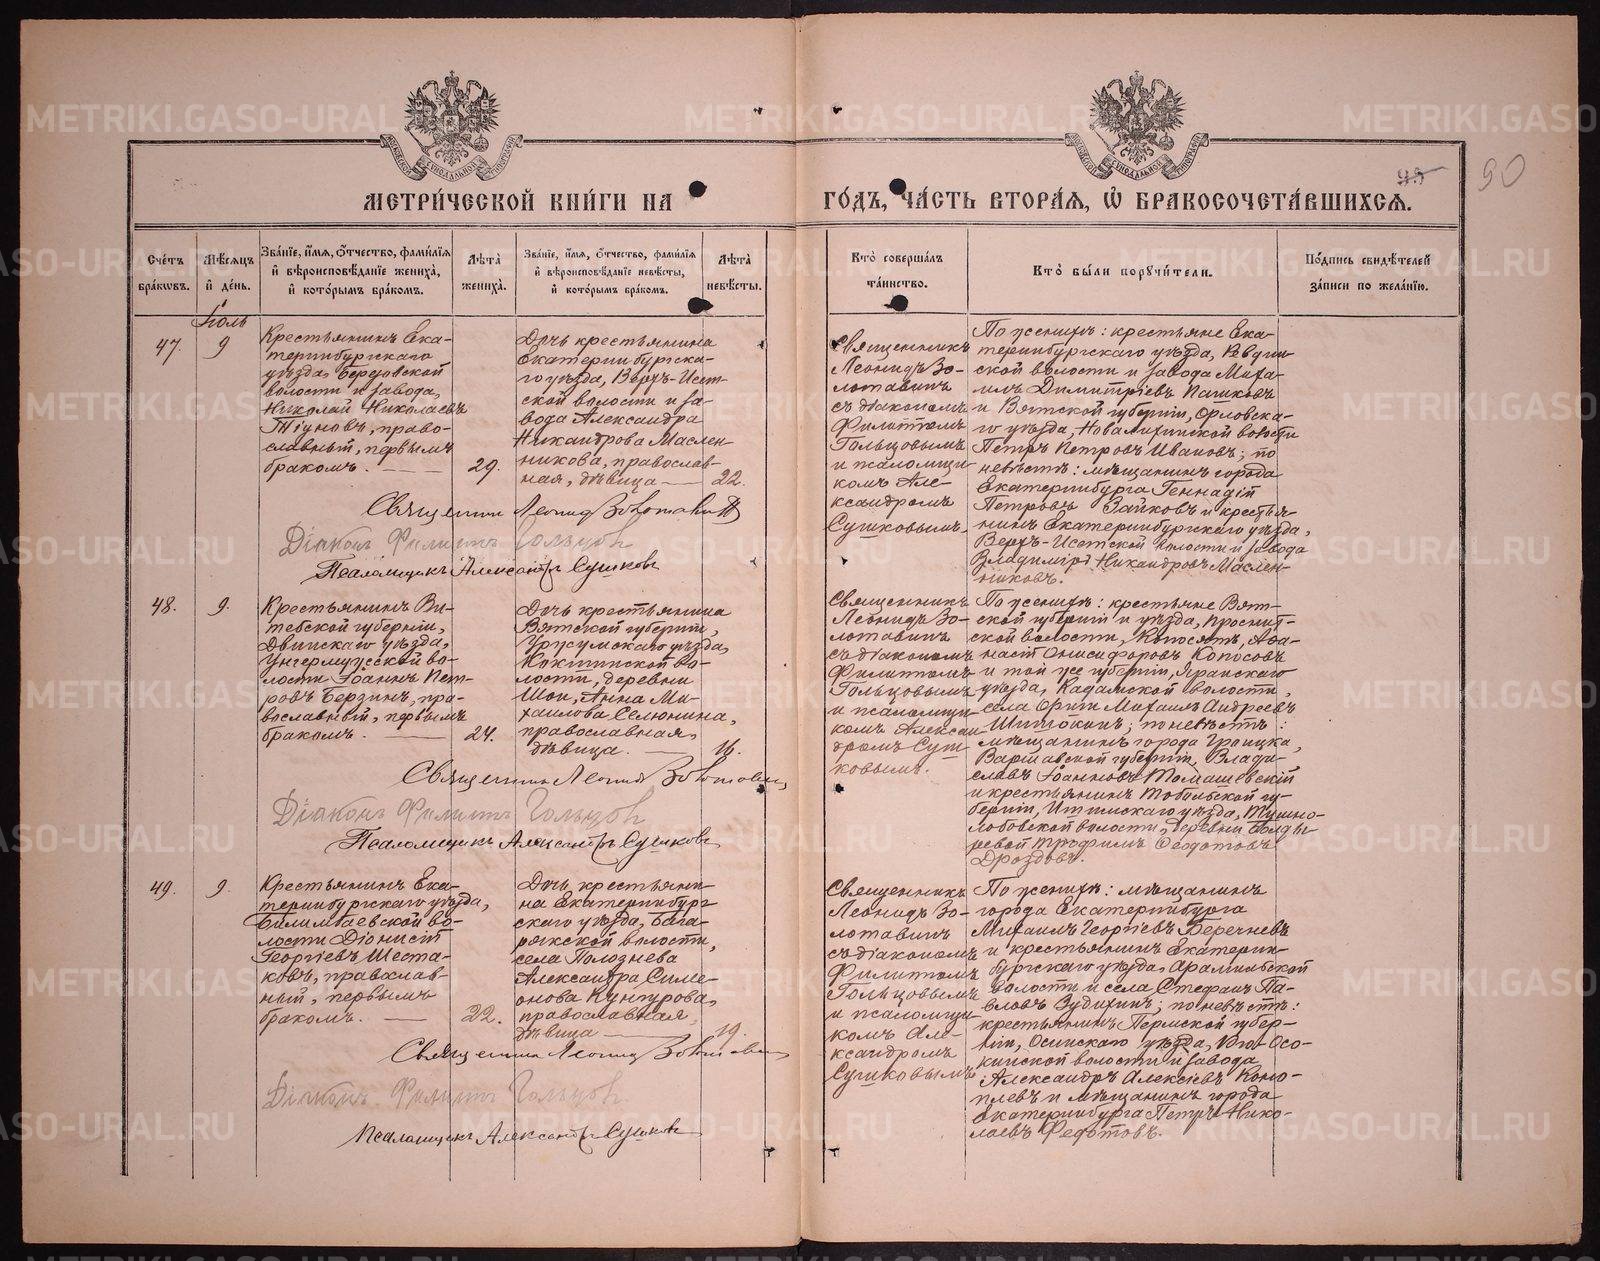 МЕТРИ́ЧЕСКОЙ КНИ́ГИ НА
ГО́ДЪ, ЧА́СТЬ ВТОРА́Я, Ѡ БРАКОСОЧЕТА́ВШИХСЯ.
90
Сче́тъ бра́ковъ.
Мѣ́сяцъ и де́нь.
Зва́нїе, и́мя, ѻ́тчество, фами́лїя и вѣроисповѣ́данїе жениха̀, и кото́рымъ бра́комъ.
Лѣта̀ жениха̀.
Зва́нїе, и́мя, ѻ́тчество, фами́лїя и вѣроисповѣ́данїе невѣ́сты, и кото́рымъ бра́комъ.
Лѣта̀ невѣ́сты.
Кто̀ соверша́лъ та́инство.
Кто̀ бы́ли порꙋчи́тели.
По́дпись свидѣ́телей за́писи по жела́нїю.
Іюль
47.
9
Крестьянинъ Ека-
теринбургскаго
уѣзда, Березовской
волости и завода,
Николай Николаевъ
Тіуновъ, право-
славный, первымъ
бракомъ.
29.
Дочь крестьянина
Екатеринбургска-
го уѣзда, Верхъ-Исет-
ской волости и за-
вода Александра
Никандрова Маслен-
никова, православ-
ная, дѣвица
22.
Священникъ
Леонидъ Зо-
лотавинъ
съ діакономъ
Филиппомъ
Гольцовымъ
и псаломщи-
комъ Але-
ксандромъ
Сушковымъ.
По женихѣ: крестьяне Ека-
теринбургскаго уѣзда, Ревдин-
ской волости и завода Миха-
илъ Димитріевъ Пашковъ
и Вятской губерніи, Орловска-
го уѣзда,
Петръ Петровъ Ивановъ; по
невѣстѣ: мѣщанинъ города
Екатеринбурга Геннадій
Петровъ Зайковъ и крестья-
нинъ Екатеринбургскаго уѣзда,
Верхъ-Исетской волости и завода
Владиміръ Никандровъ Маслен-
никовъ.
Священникъ Леонид Золотавин
Діаконъ Филиппъ Гольцовъ
Псаломщикъ Александръ Сушковъ
48.
9.
Крестьянинъ Ви-
тебской губерніи,
Двинскаго уѣзда,
Унгермуйсской во-
лости Іоаннъ Пет-
ровъ Берзинъ, пра-
вославный, первымъ
бракомъ.
24.
Дочь крестьянина
Вятской губерніи,
Уржумскаго уѣзда,
во-
лости, деревни
Шои, Анна Ми-
хаилова Селюнина,
православная,
дѣвица.
16.
Священникъ
Леонидъ Зо-
лотавинъ
съ діакономъ
Филиппомъ
Гольцовымъ
и псаломщи-
комъ Алексан-
дромъ Суш-
ковымъ.
По женихѣ: крестьяне Вят-
ской губерніи и уѣзда,
ской волости,
Онисифоровъ Копосовъ
и той же губерніи, Яранскаго
уѣзда, Кадамской волости,
села Андреевъ
по невѣстѣ:
мѣщанинъ города Гроицка,
Варшавской губерніи, Влади-
славъ Іоанновъ Томашевскій
и крестьянинъ Тобольской гу-
берніи, Ишимскаго уѣзда, Тушно-
лобовской волости, деревни Болды-
ревой Трофимъ Ѳеодотовъ
Дроздовъ.
Священникъ Леонид Золотавин
Діаконъ Филиппъ Гольцовъ
Псаломщикъ Александръ Сушковъ
49.
9.
Крестьянинъ Ека-
теринбургскаго уѣзда,
Билимбаевской во-
лости Діонисій
Георгіевъ Шеста-
ковъ, православ-
ный, первымъ
бракомъ.
22.
Дочь крестьяни-
на Екатеринбург-
скаго уѣзда, Бага-
рякской волости,
села Полднева
Александра Симе-
онова Кунгурова,
православная,
дѣвица
19.
Священникъ
Леонидъ Зо-
лотавинъ
съ діакономъ
Филиппомъ
Гольцовымъ
и псаломщи-
комъ Але-
ксандромъ
Сушковымъ
По женихѣ: мѣщанинъ
города Екатеринбурга
Михаилъ Георгіевъ Беречневъ
и крестьянинъ Екатерин-
бургскаго уѣзда, Арамильской
волости и села Стефанъ Па-
вловъ Зудихинъ; по невѣстѣ:
крестьянинъ Пермской губер-
ніи, Осинскаго уѣзда, Юго-Осо-
кинской волости и завода
Александръ Алексіевъ Коно-
плевъ и мѣщанинъ города
Екатеринбурга Петръ Нико-
лаевъ Федотовъ.
Священникъ Леонид Золотавин
Діаконъ Филиппъ Гольцовъ.
Псаломщикъ Александръ Сушковъ
METRIKI.GASO-URAL.RU